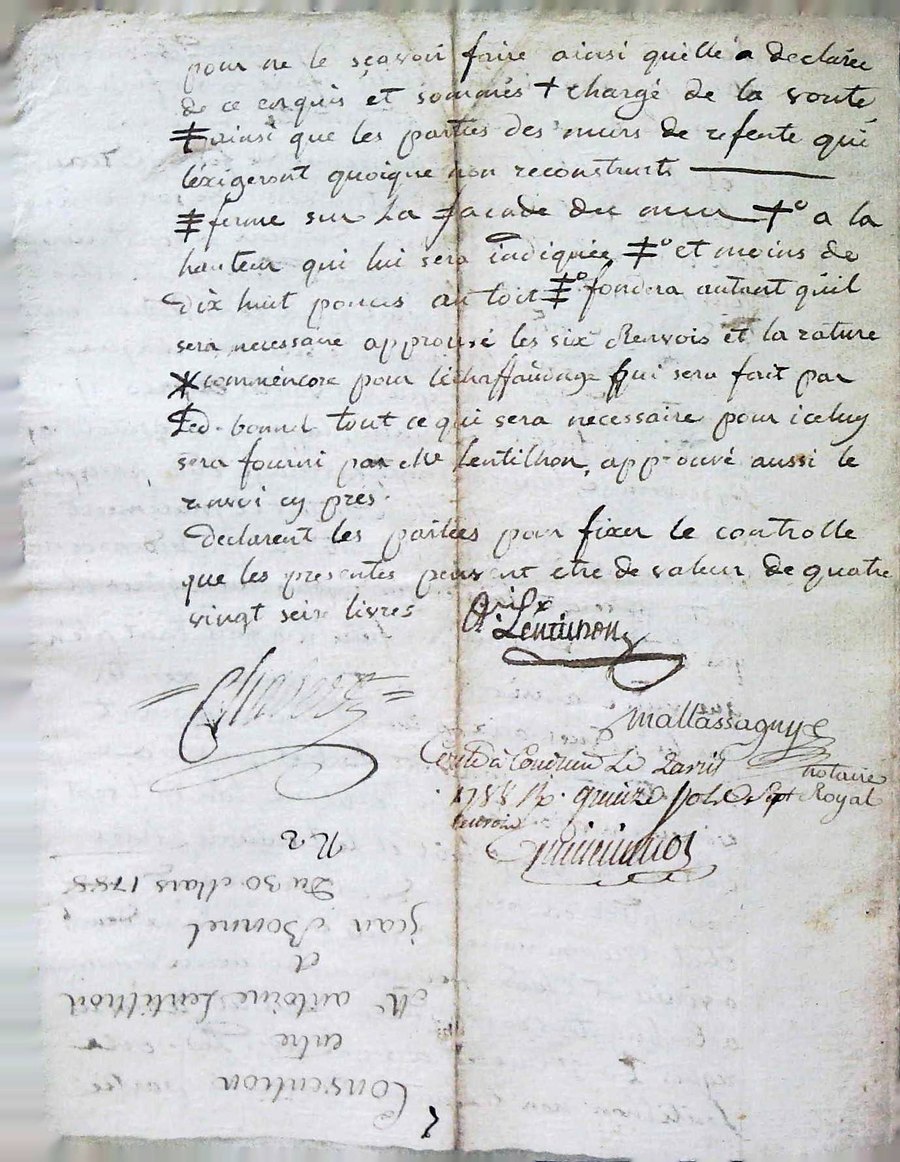 pour ne le sçavoir faire ainsi quelle a declarée
de ce enquis et sommés + chargé de la voute
ǂ ainsi que les parties des murs de refente qui
lexigeront quoique non reconstruits
ǂ ferme sur la facade du mur +° a la
hauteur qui lui sera indiquée ǂ° et moins de
dix huit pouces au toit ǂ° fondera autant quil
sera necessaire approuvé les six Renvois et la rature
comm'encore pour lechaffaudage qui sera fait par
Led. bonnel tout ce qui sera necessaire pour iceluy
sera fourni par Me Lentilhon, approuvé aussi le
renvoi cy pres.
Declarent les parties pour fixer le controlle
que les presentes peuvent etre de valeur de quatre
vingt seize livres
Lentilhon
mallassagny
notaire
Royal
1788 quinze sols
N 2
Du 30 Mars 1788
jean Bonnel
et
Me antoine Lentilhon
entre
Convention